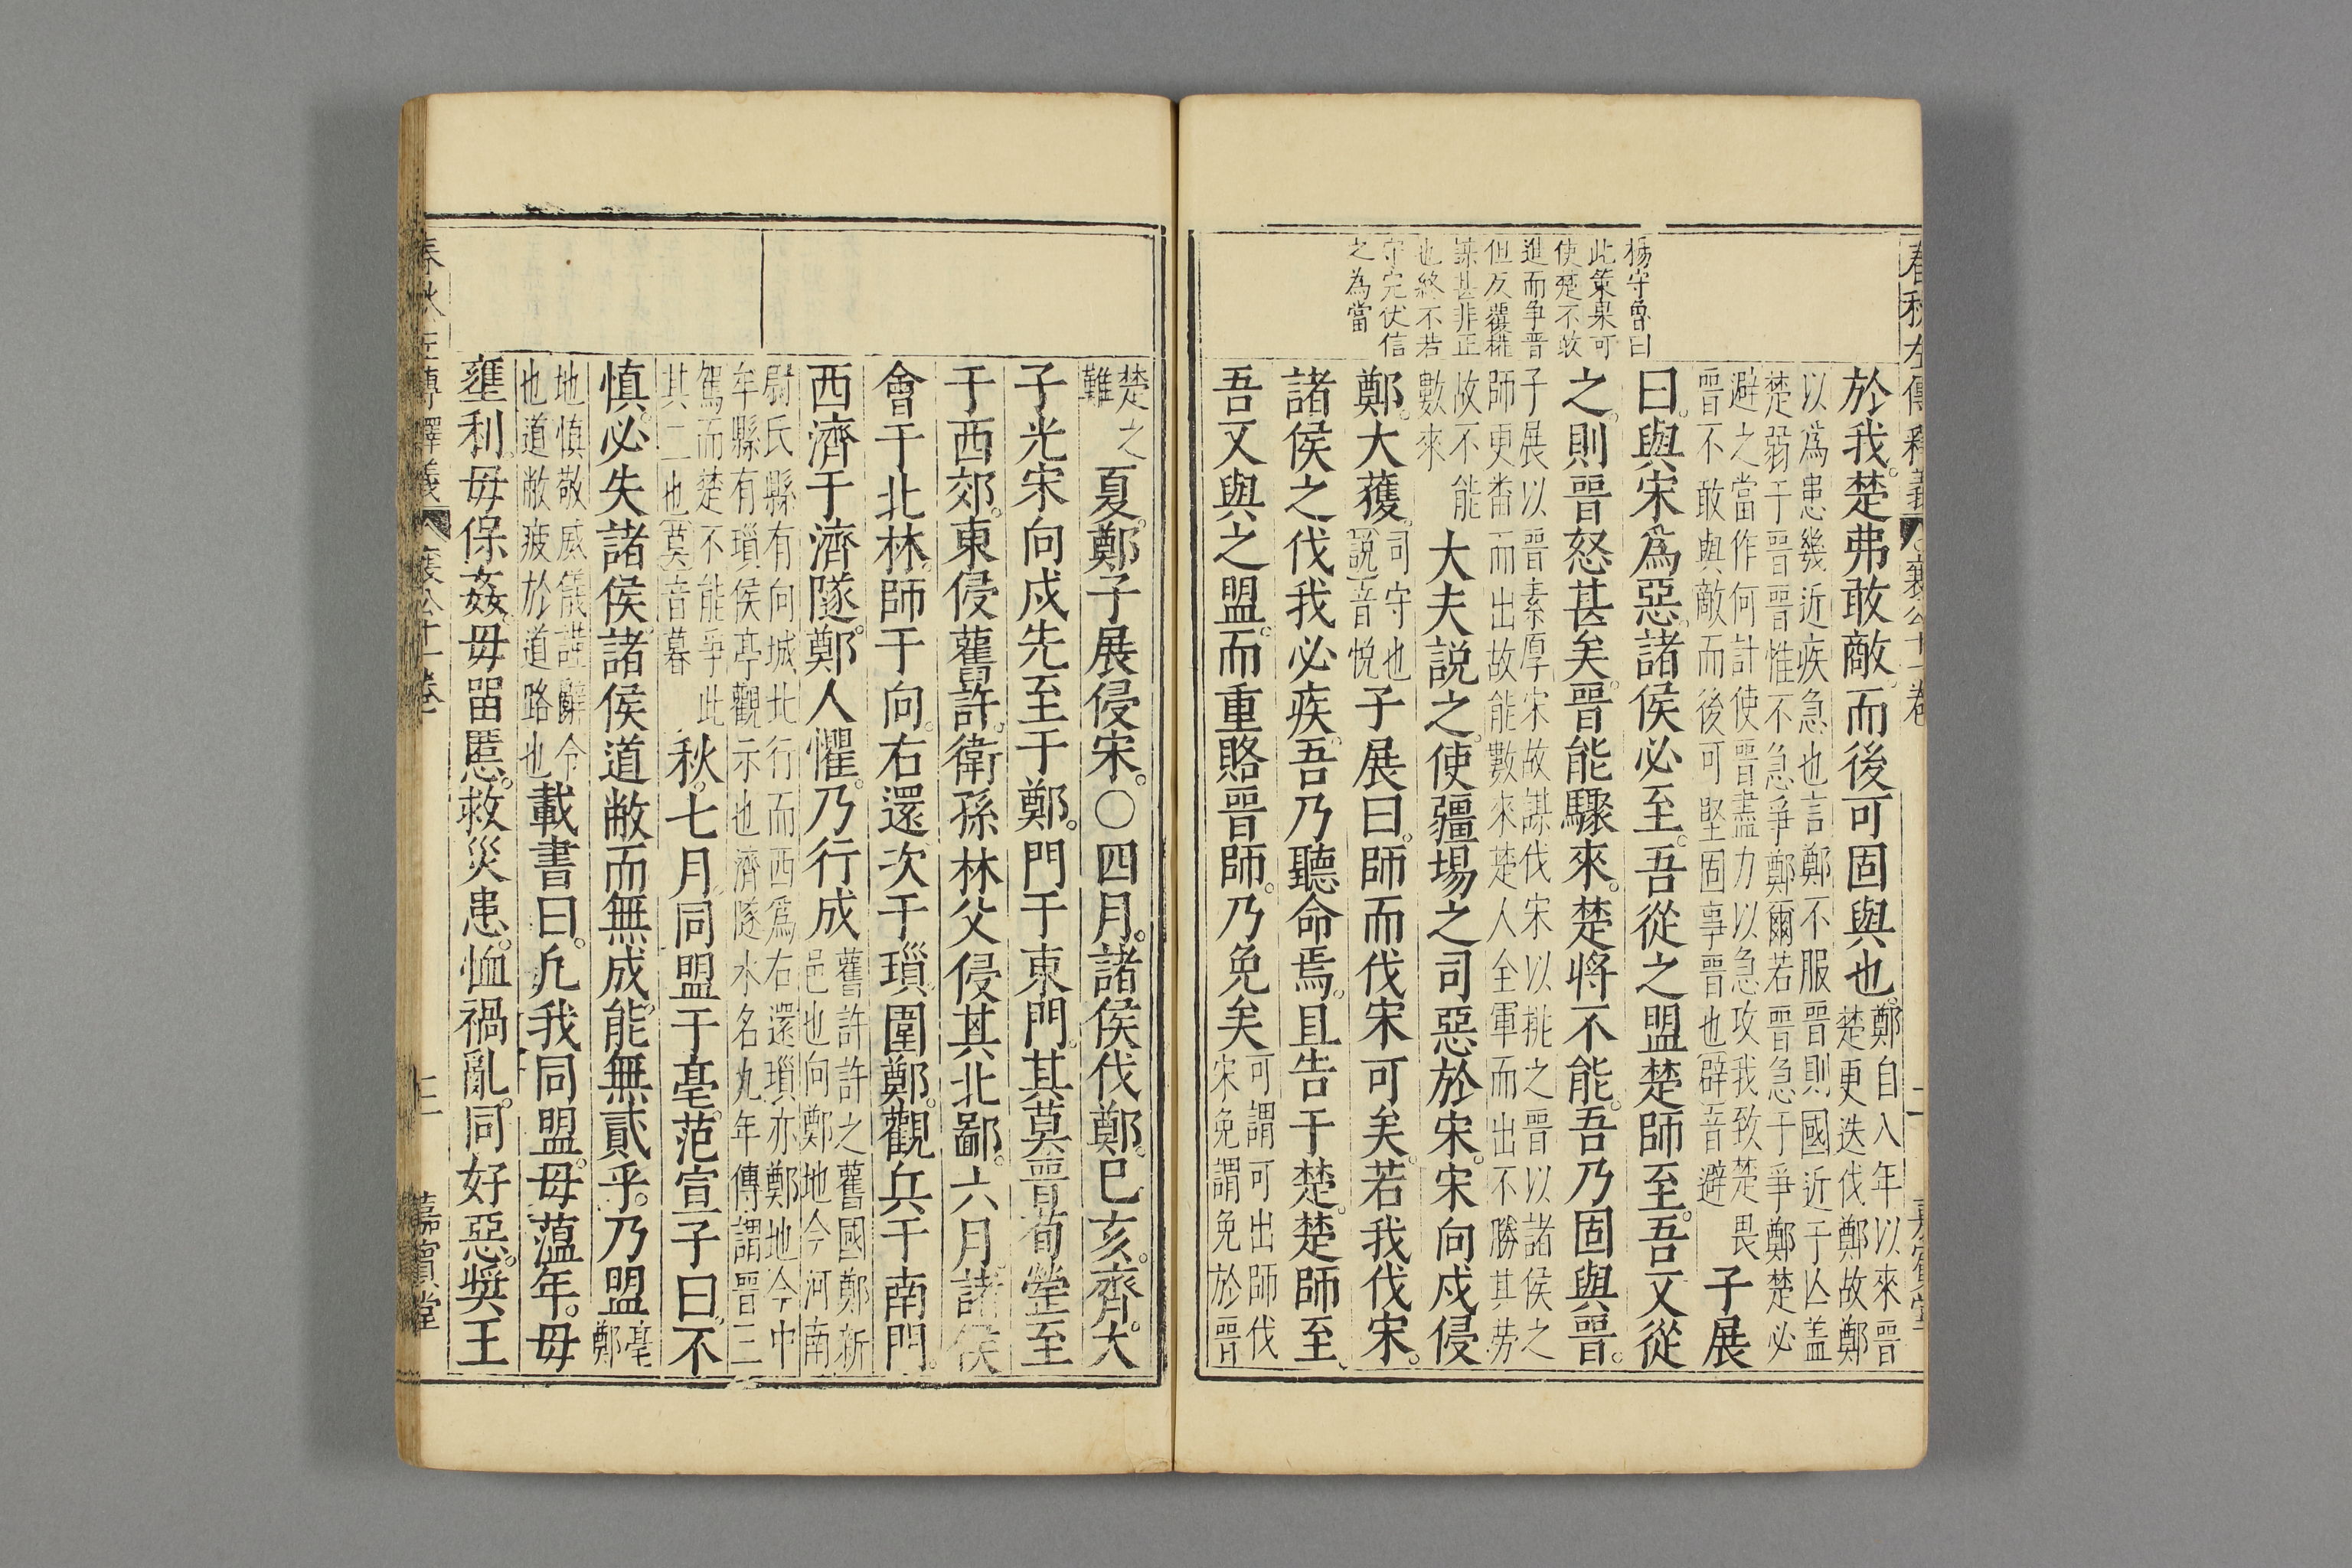 春秋左傳釋義 襄公十一卷
楊守魯曰
此策果可
使楚不敢
進而争晉
但反覆
謀甚非正
也終不若
守完伏信
之為當
於我。楚弗敢敵。而後可固與也。鄭自入年以來晉
楚更迭伐鄭故鄭
以爲患幾近疾急也言鄭不服晉則國近于亾蓋
楚弱于晉晉惟不急爭鄭爾若晉急于爭鄭楚必
避之當作何計使晉盡力以急攻我致楚畏
晉不敢與敵而後可堅固事晉也辟音避
子展
曰。與宋爲惡。諸侯必至。吾從之盟楚師至。吾又從
之。則晉怒甚矣。晉能驟來。楚將不能。吾乃固與晉。
子展以晉素厚宋故謀伐宋以挑之晉以諸侯之
師更畨而出故能數來楚人全軍而出不勝其勞
故不能
數來
大夫説之。使疆場之司惡於宋。宋向戍侵
鄭。大獲。司守也
説音悅
子展曰。師而伐宋可矣。若我伐宋。
諸侯之伐我必疾。吾乃聽命焉。且告于楚。楚師至。
吾又與之盟。而重賂晉師。乃免矣可謂可出師伐
宋免謂免於晉
楚之
難
夏。鄭子展侵宋。○四月。諸侯伐鄭。巳亥。齊大
子光宋向戍先至于鄭。門于東門。其莫晉荀罃至
于西郊。東侵舊許。衛孫林父侵其北鄙。六月。諸侯
會于北林。師于向。右還次于瑣圍鄭。觀兵于南門。
西濟于濟隧。鄭人懼。乃行成舊許許之舊國鄭新
邑也向鄭地今河南
尉氏縣有向城北行而西爲右還瑣亦鄭地今中
牟縣有瑣侯亭觀示也濟隧水名九年傳謂晉三
駕而楚不能爭此
其二也莫音暮
秋。七月。同盟于亳。范宣子曰。不
慎。必失諸侯。諸侯道敝而無成。能無貳乎。乃盟亳
鄭
地慎敬威儀謹辭令
也道敝疲於道路也
載書曰。凡我同盟。毋薀年。毋
壅利。毋保姦。毋畱慝。救災患。恤禍亂。同好惡。奬王
春秋左傳釋義 襄公十一卷 嘉賓堂